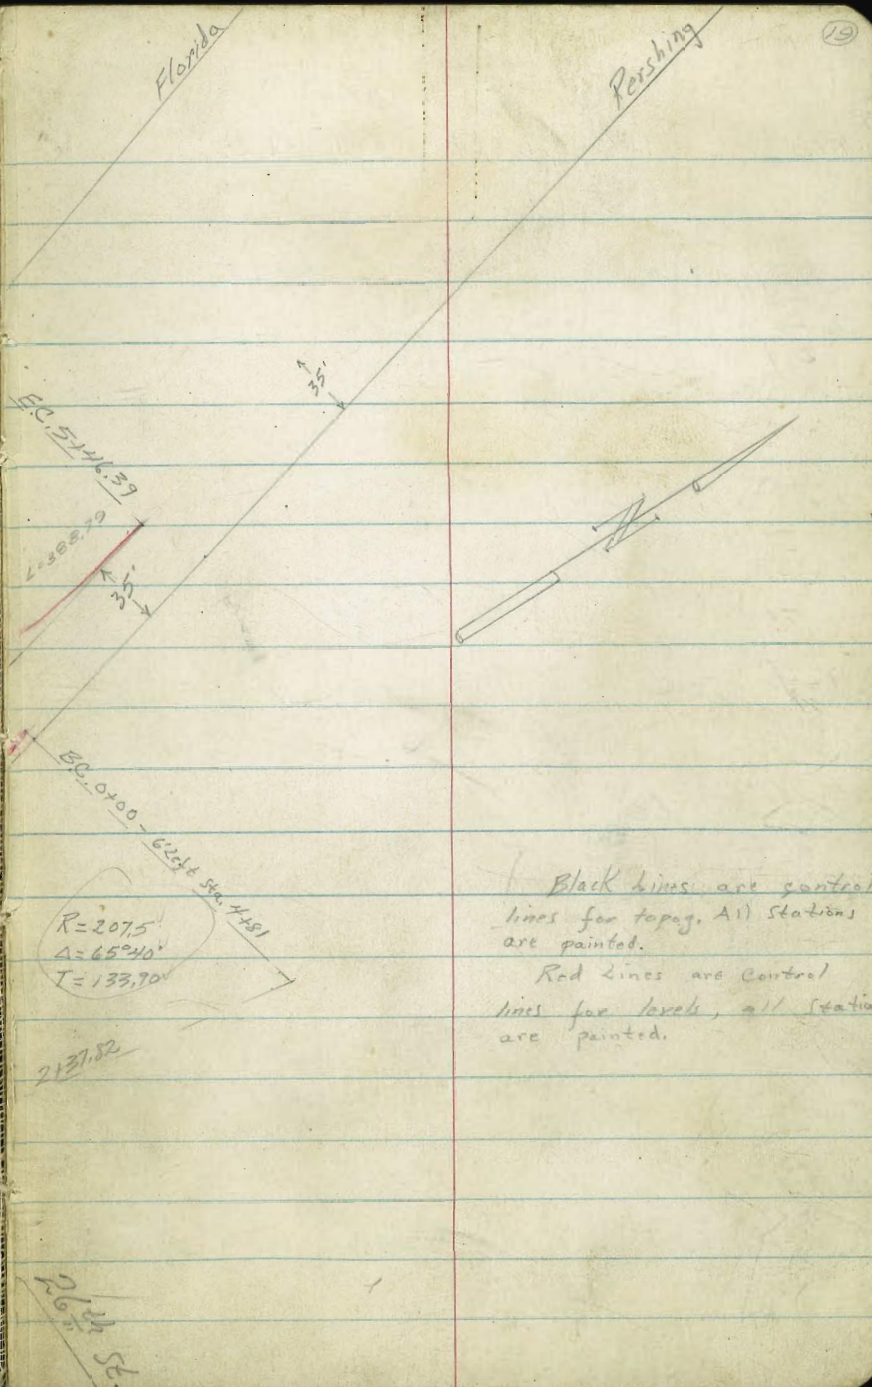 19
Florida
Pershing
35'
E.C. 5+46.39
L=388.79
35'
B.C. 0+00 - 6' Left Sta. 4+81
R=207.5
Δ=65°40'
T=133.90
Black Lines are control
lines for topog. All Stations
are painted.
Red Lines are Control
lines for levels, all Statio
are painted.
2+37.82
26th St.
N